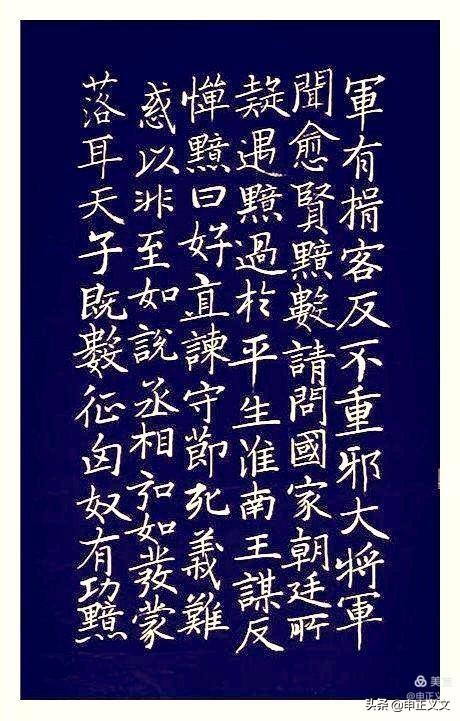 軍有揖客反不重邪大將軍
聞愈賢黯數請問國家朝廷所
疑遇黯過於平生淮南王謀反
憚黯曰好直諫守節死義難
惑以非至如說丞相弘如發蒙
落耳天子既數征匈奴有功黯
头条 @申正义文